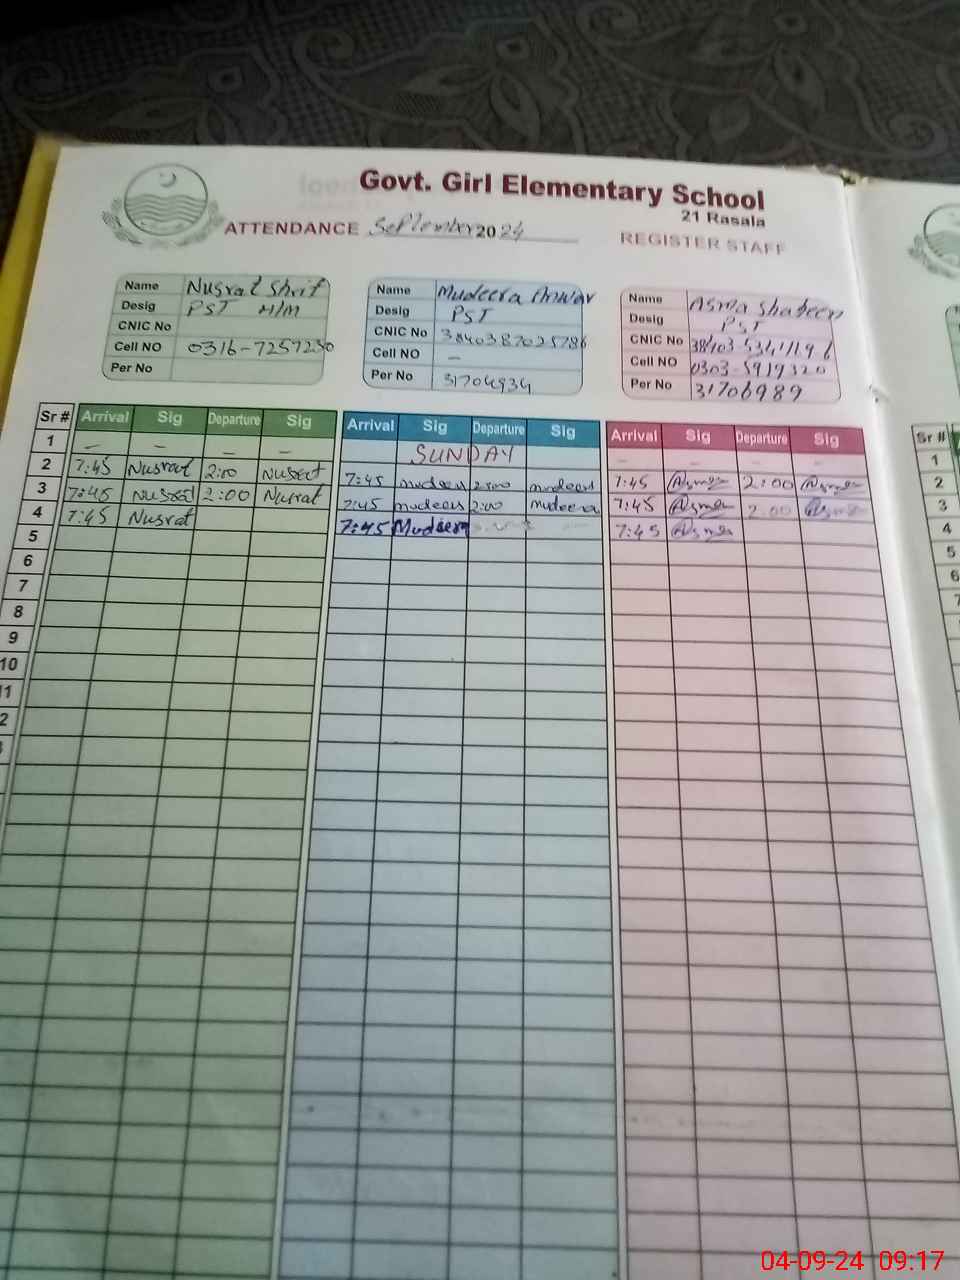 Govt. Girl Elementary School
21 Rasala
ATTENDANCE September 2024
REGISTER STAFF
Name Nusrat Shrif
Desig PST H/M
CNIC No
Cell NO 0316-7257230
Per No
Name Mudeera Anwar
Desig PST
CNIC No 3840387025786
Cell NO –
Per No 31704934
Name Asma Shaheen
Desig PST
CNIC No
Cell NO 0303-5919320
Per No 31706989
Sr # Arrival Sig Departure Sig Arrival Sig Departure Sig Arrival Sig Departure Sig Sr #
1 – – – – SUNDAY – – – – 1
2 7:45 Nusrat 2:00 Nusrat 7:45 mudeera 2:00 mudeera 7:45 Asma 2:00 Asma 2
3 7:45 Nusrat 2:00 Nusrat 7:45 mudeera 2:00 mudeera 7:45 Asma 2:00 Asma 3
4 7:45 Nusrat 7:45 Mudeera 7:45 Asma 4
5 5
6 6
7 7
8
9
10
11
2
04-09-24 09:17